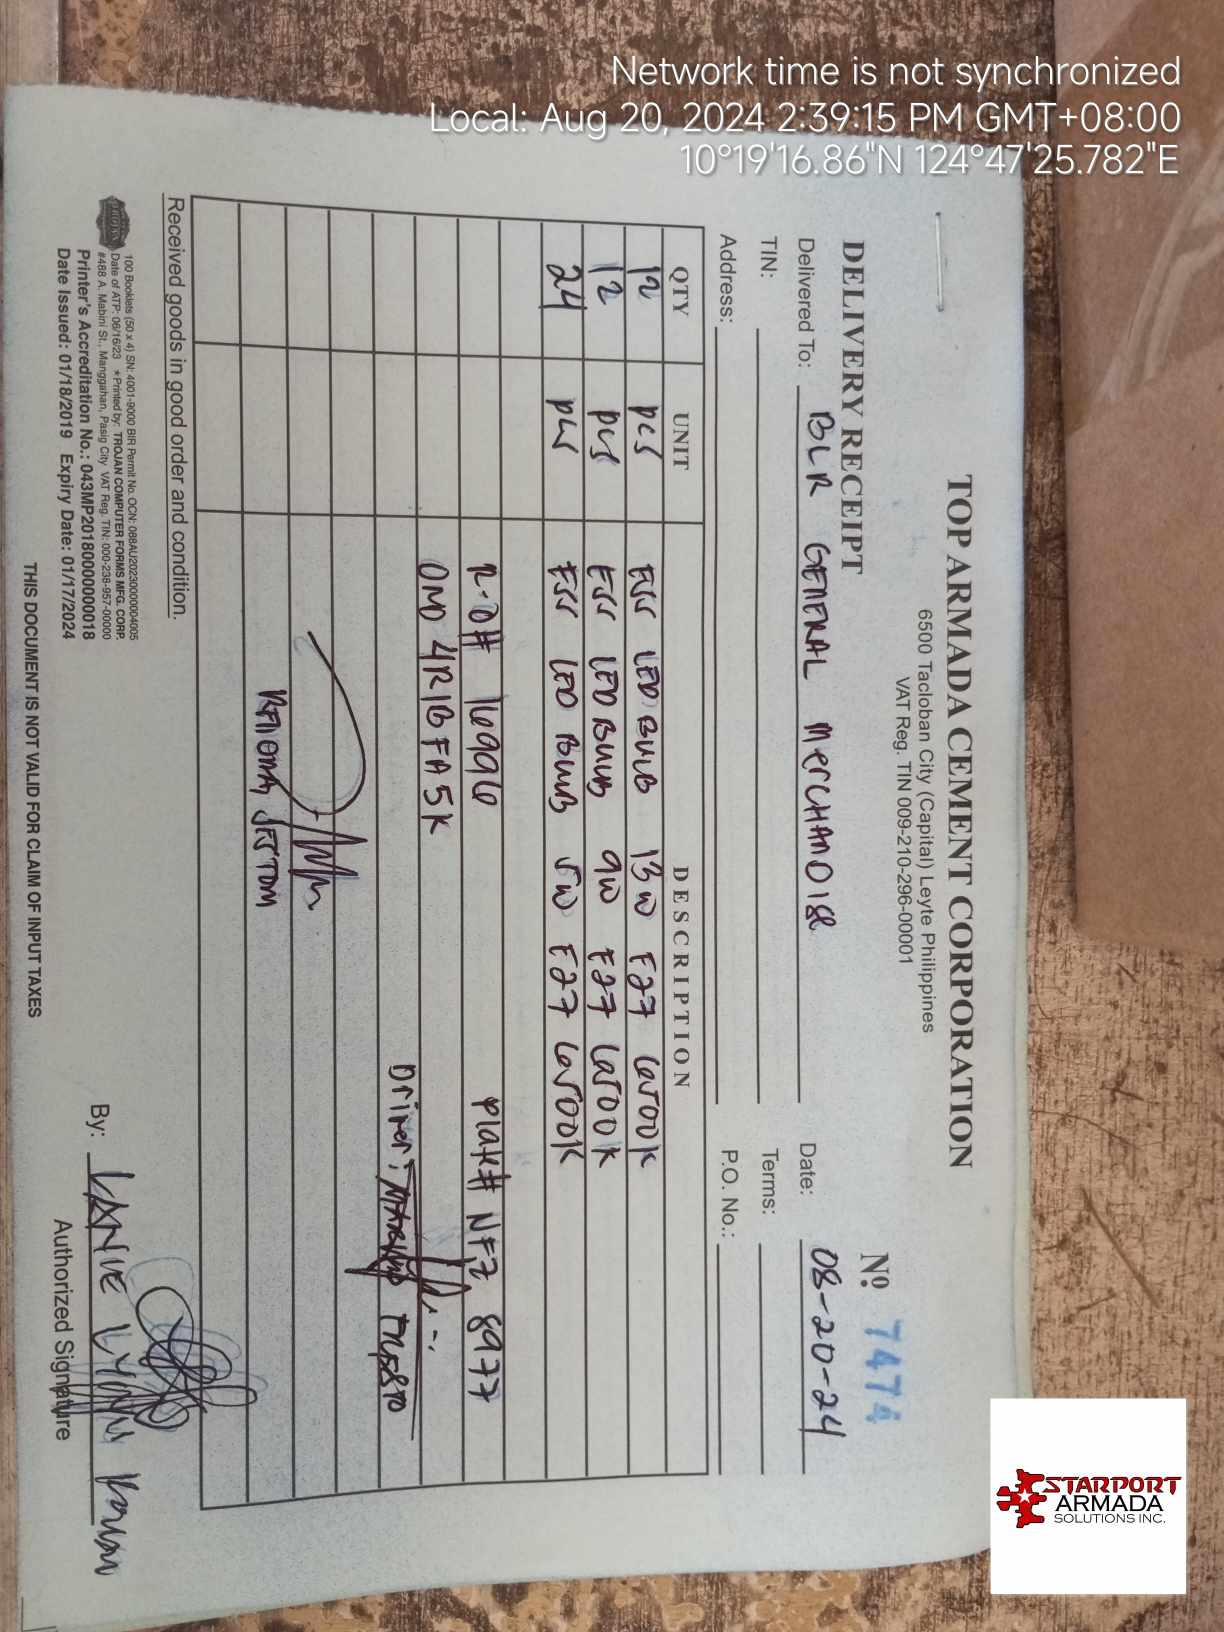 Network time is not synchronized
Local: Aug 20, 2024 2:39:15 PM GMT+08:00
10°19'16.86"N 124°47'25.782"E
TOP ARMADA CEMENT CORPORATION
6500 Tacloban City (Capital) Leyte Philippines
VAT Reg. TIN 009-210-296-00001
DELIVERY RECEIPT
Nº 7474
Delivered To: BLR GENERAL MERCHANDISE Date: 08-20-24
TIN: Terms:
Address: P.O. No.:
QTY UNIT DESCRIPTION
12 pcs ESS LED BULB 13W E27 6500K
12 pcs ESS LED BULB 9W E27 6500K
24 pcs ESS LED BULB 5W E27 6500K
R.O# 16996 plate# NFZ 8977
OMD 4R1BFA5K
Driver:
Received goods in good order and condition.
100 Booklets (50 x 4) SN: 4001-9000 BIR Permit No. OCN: 088AU20230000004005
Date of ATP: 06/16/23 *Printed by: TROJAN COMPUTER FORMS MFG. CORP.
#488 A. Mabini St., Manggahan, Pasig City VAT Reg. TIN: 000-238-957-00000
Printer's Accreditation No.: 043MP20180000000018
Date Issued: 01/18/2019 Expiry Date: 01/17/2024
By: LANIE
Authorized Signature
THIS DOCUMENT IS NOT VALID FOR CLAIM OF INPUT TAXES
STARPORT
ARMADA
SOLUTIONS INC.